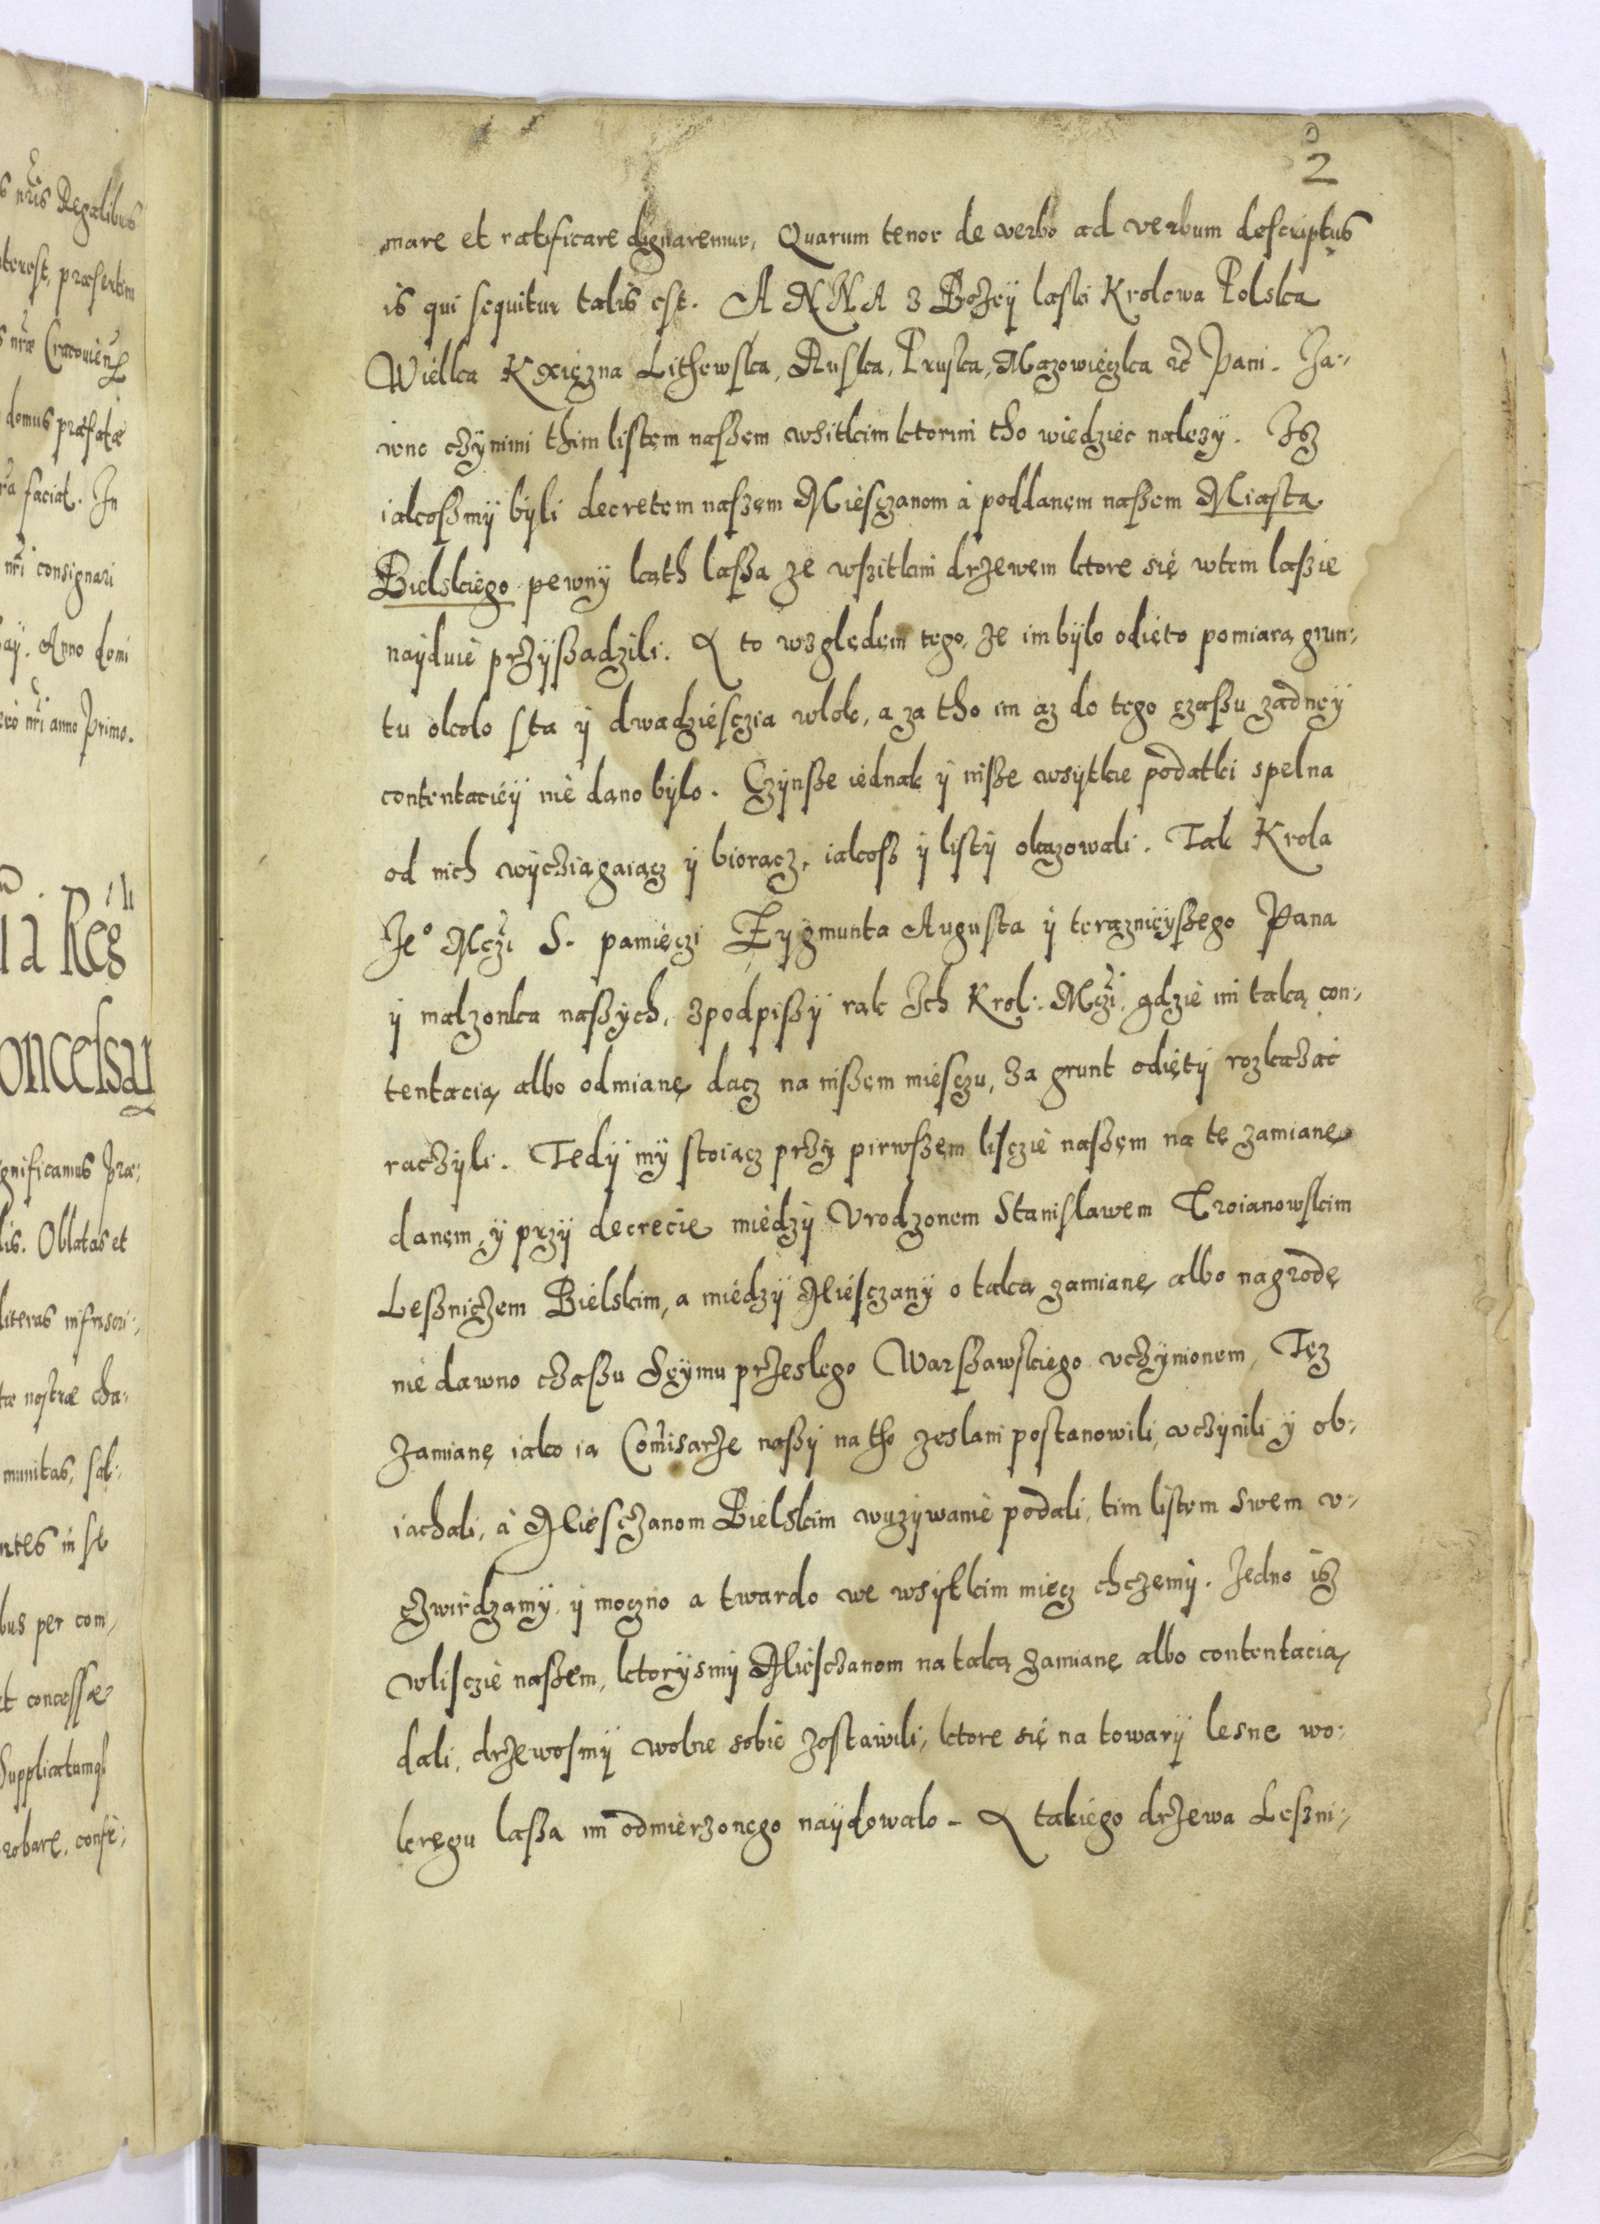 s nr̃is Regalibus
nterest, præsertim
s nr̃æ Cracovien
domus præfatæ
ra faciat. In
nr̃i consignari
Maij. Anno domi
vero nr̃i anno Primo.
ià Reg
oncessar
gnificamus præ:
lis. Oblatas et
literas infrascri:
tæ nostræ cha:
munitas, sal:
ntes in se
bus per com,
et concessæ
Supplicatumq3
robare, confi:
2
mare et ratificare dignaremur, Quarum tenor de verbo ad verbum descriptus
is qui sequitur talis est. ANNA z Bożeÿ laski Krolowa Polska
Wielka Kxięzna Lithewska, Ruska, Pruska, Mazowieczka etc Pani. Ja:
wno czÿnimi thim listem naszem wszitkim ktorim tho wiedziec nalezÿ. Isz
iakoszmÿ bÿli decretem naszem Miesczanom à poddanem naszem Miasta
Bielskiego pewnÿ kąth lassa ze wszitkim drzewem ktore się wtem laszie
naÿduie przÿsządzili. A to względem tego, że im bÿlo odięto pomiarą grun:
tu okolo sta ÿ dwadziesczia wlok, a za tho im az do tego czassu zadneÿ
contentacieÿ nie dano bÿlo. Czÿnsze iednak ÿ insze wsÿtkie podatki spelna
od nich wÿchiągaiącz ÿ bioracz, iakosz ÿ listÿ okazowali. Tak Krola
Je° Mczi S. pamięczi Zygmunta Augusta ÿ teraznieÿszego Pana
ÿ malzonka naszÿch, zpodpiszÿ rąk Ich Krol: Mczi, gdzie im taką con:
tentacią albo odmianę dacz na inszem miesczu, za grunt odiętÿ rozkazać
raczÿli. Tedÿ mÿ stoiącz przÿ pirwszem lisczie naszem na tę zamianę
danem, ÿ przÿ decrecie międzÿ Vrodzonem Stanislawem Troianowskim
Leszniczem Bielskim, a międzÿ Miesczanÿ o taką zamianę albo nagrodę
nie dawno czassu Seÿmu przeslego Warszawskiego vczÿnionem, Tęz
zamianę iako ią Com̃isarze naszÿ na tho zeslani postanowili, vczÿnili ÿ ob:
iachali, à Miesczanom Bielskim wuzÿwanie podali, tim listem swem v:
czwirdzamÿ, ÿ moczno a twardo we wsÿtkim miecz chczemÿ. Jedno isz
wlisczie naszem, ktorÿsmÿ Miesczanom na taką zamianę albo contentacią
dali, drzewosmÿ wolne sobie zostawili, ktore się na towarÿ lesne wo:
kręgu lassa im odmierzonego naÿdowalo – A takiego drzewa Leszni: